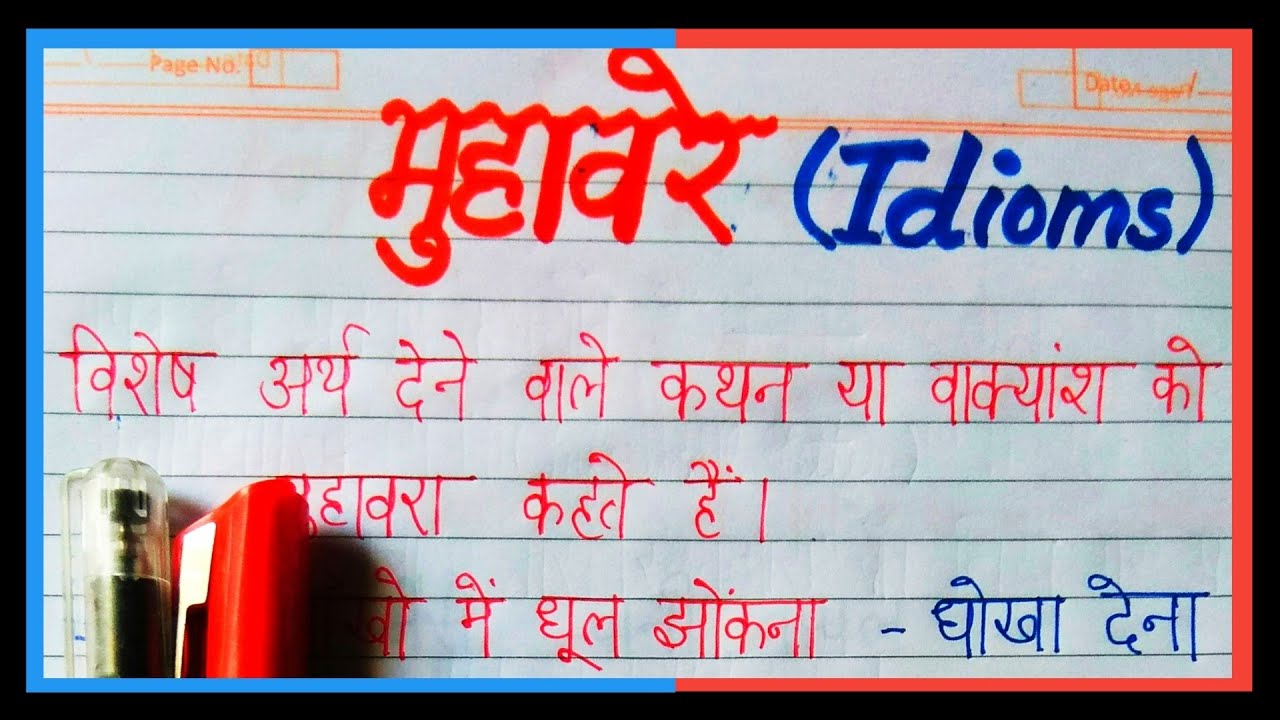 Page No.
Date
मुहावरे (Idioms)
विशेष अर्थ देने वाले कथन या वाक्यांश को
कहते हैं।
में धूल झोंकना - धोखा देना